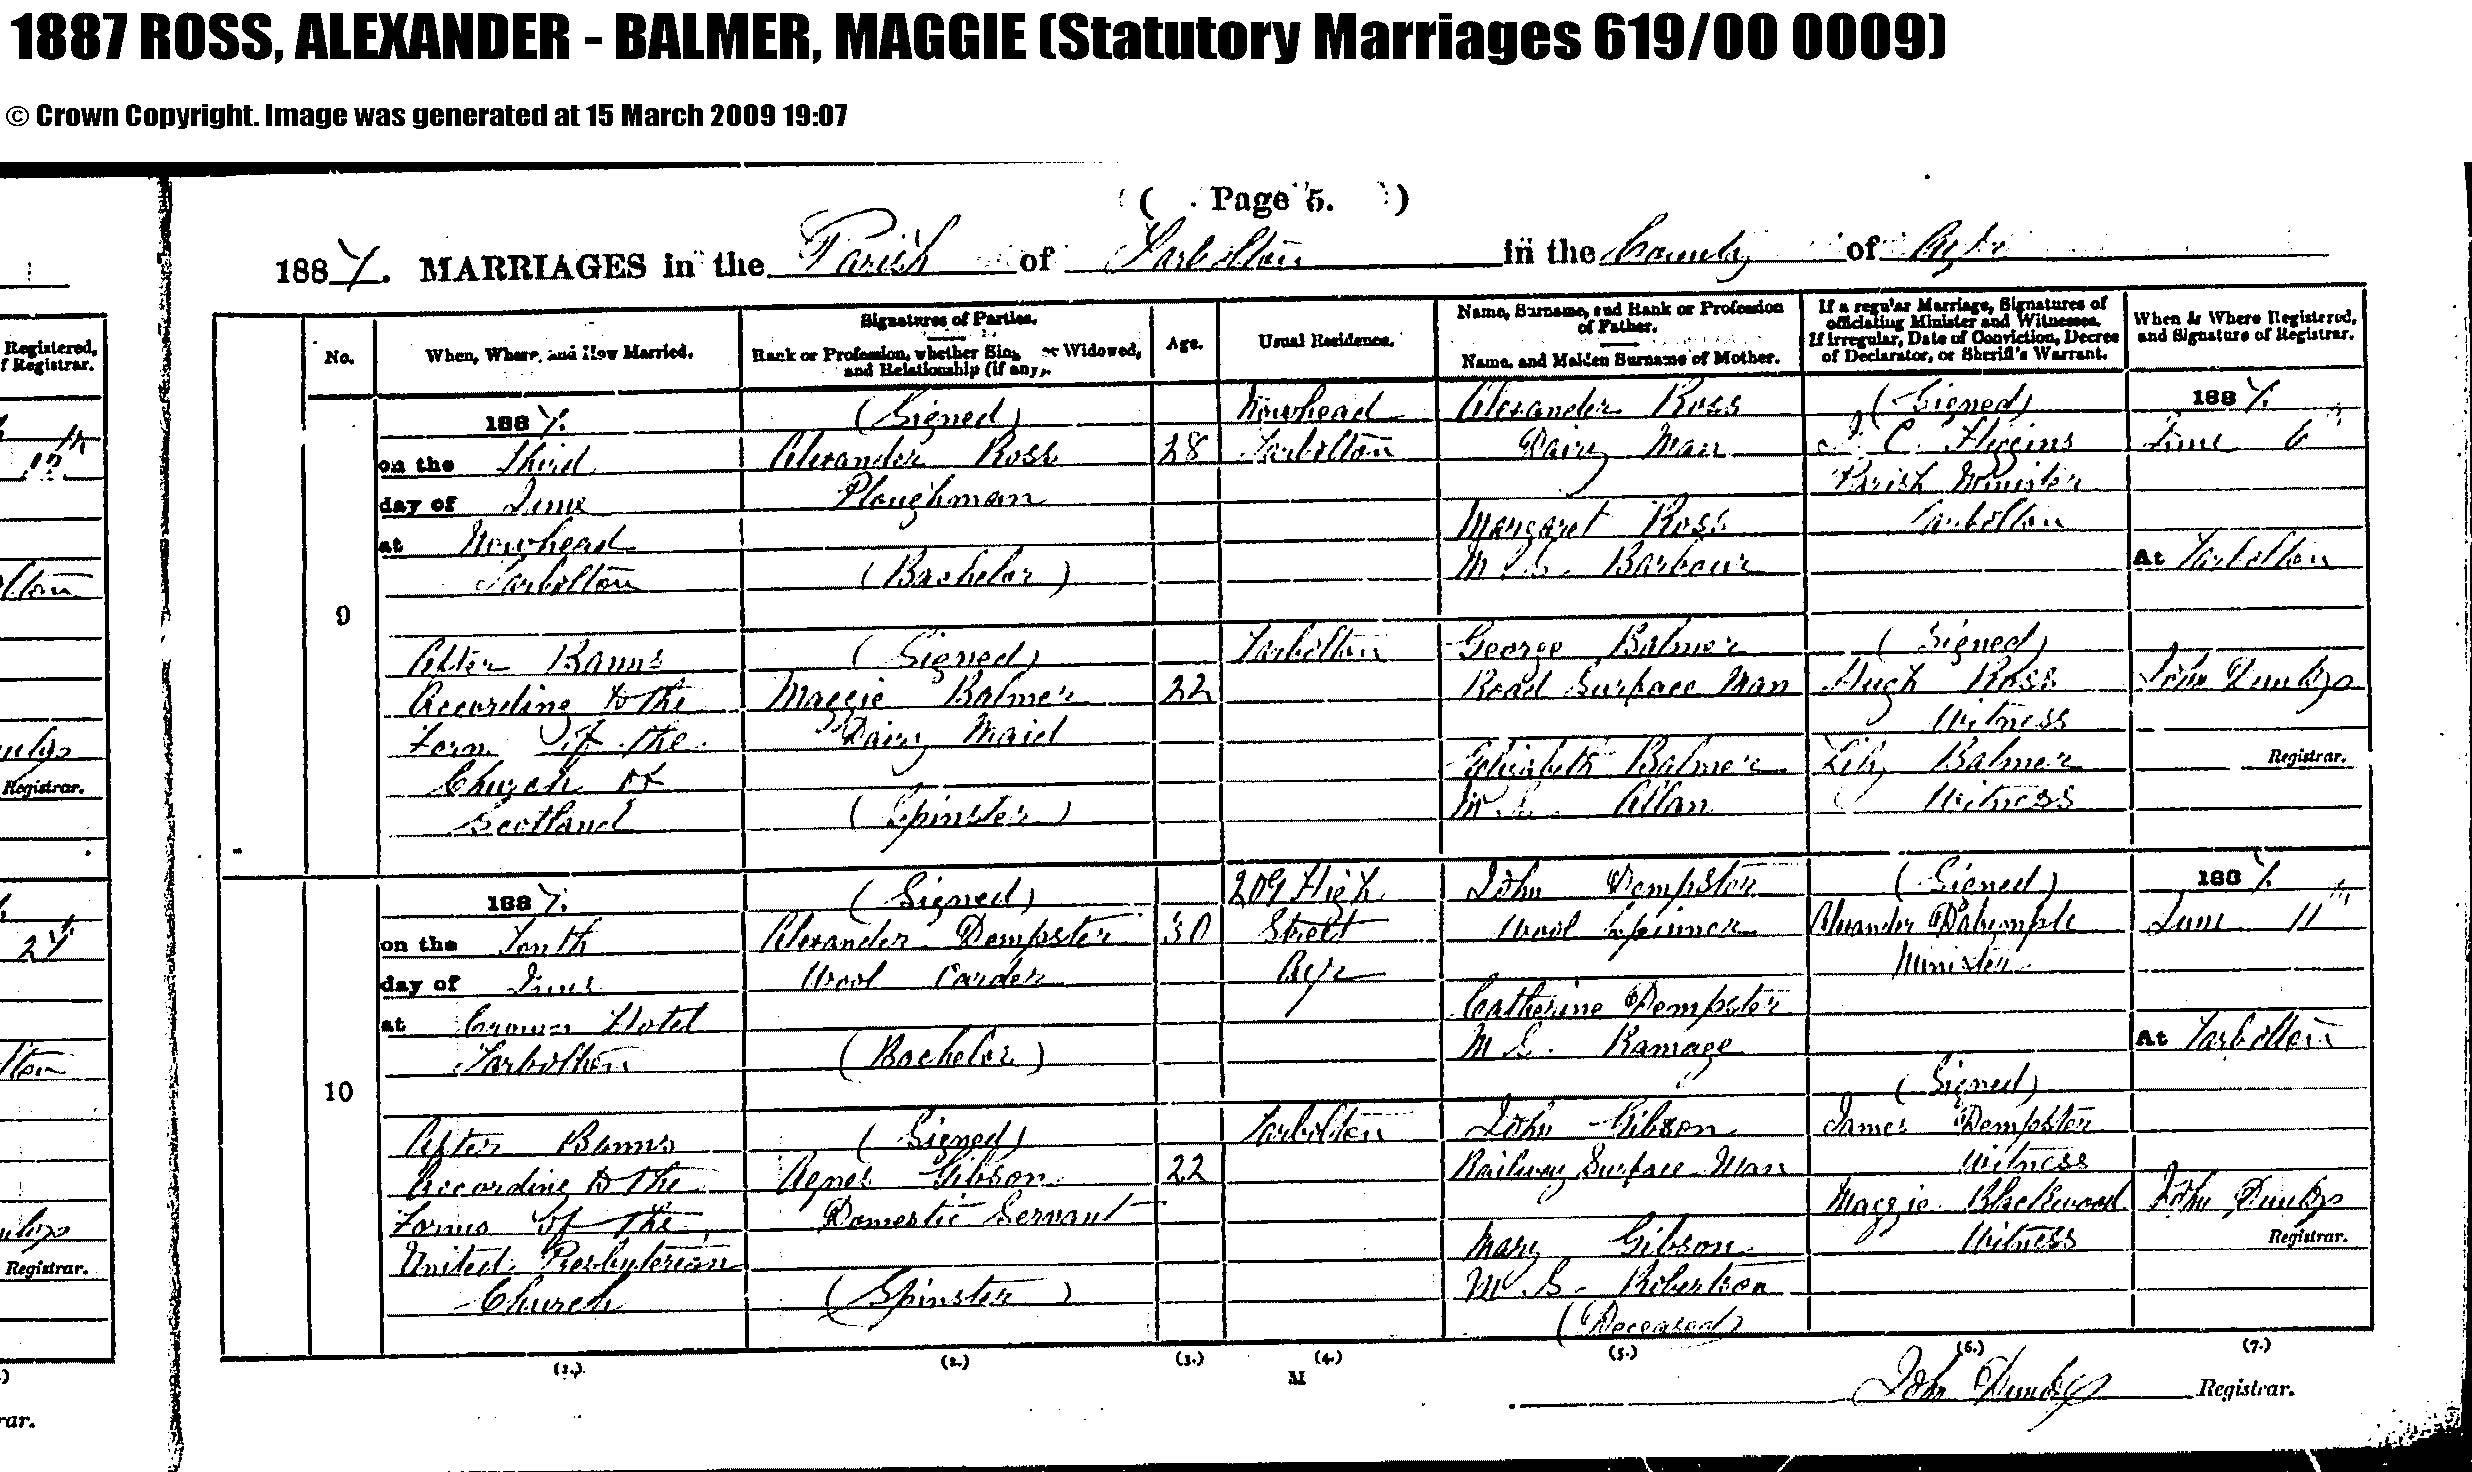 1887 ROSS, ALEXANDER - BALMER, MAGGIE (Statutory Marriages 619/00 0009)
© Crown Copyright. Image was generated at 15 March 2009 19:07
( Page 5. )
1887. MARRIAGES in the Parish of Tarbolton in the County of Ayr
No.
When, Where, and How Married.
Signatures of Parties.
Rank or Profession, whether Single or Widowed,
and Relationship (if any).
Age.
Usual Residence.
Name, Surname, and Rank or Profession
of Father.
Name, and Maiden Surname of Mother.
If a regular Marriage, Signatures of
officiating Minister and Witnesses.
If irregular, Date of Conviction, Decree
of Declarator, or Sheriff's Warrant.
When & Where Registered,
and Signature of Registrar.
9
1887.
on the Third
day of June
at Newhead
Tarbolton
After Banns
According to the
Form of the
Church of
Scotland
(Signed)
Alexander Ross
Ploughman
(Bachelor)
(Signed)
Maggie Balmer
Dairy Maid
(Spinster)
28
22
Newhead
Tarbolton
Tarbolton
Alexander Ross
Dairy Man
Margaret Ross
M.S. Barbour
George Balmer
Road Surface Man
Elizabeth Balmer
M.S. Allan
(Signed)
C. Higgins
Parish Minister
Tarbolton
(Signed)
Hugh Ross
Witness
Lily Balmer
Witness
1887.
June 6th
At Tarbolton
John Dunlop
Registrar.
10
1887.
on the Tenth
day of June
at Crown Hotel
Tarbolton
After Banns
According to the
Forms of the
United Presbyterian
Church
(Signed)
Alexander Dempster
Wool Carder
(Bachelor)
(Signed)
Agnes Gibson
Domestic Servant
(Spinster)
30
22
209 High
Street
Ayr
Tarbolton
John Dempster
Wool Spinner
Catherine Dempster
M.S. Ramage
John Gibson
Railway Surface Man
Mary Gibson
M.S. Robertson
(Deceased)
(Signed)
Alexander Dalrymple
Minister
(Signed)
James Dempster
Witness
Maggie Blackwood
Witness
1887.
June 11th
At Tarbolton
John Dunlop
Registrar.
(1.) (2.) (3.) (4.) (5.) (6.) (7.)
M
John Dunlop Registrar.
Registered,
f Registrar.
Registrar.
Registrar.